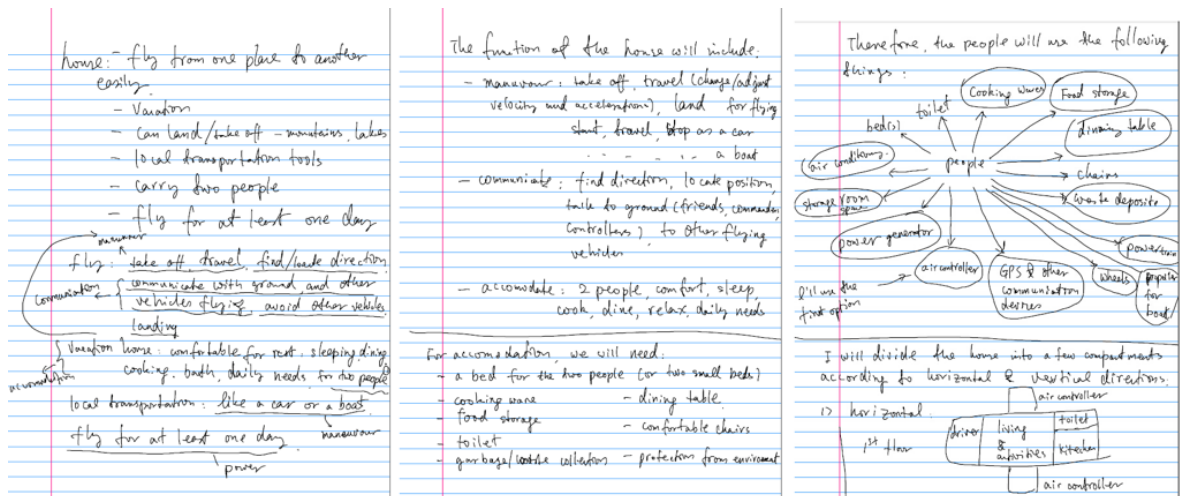 house: - fly from one place to another
easily.
- Vacation
- Can land/take off - mountains, lakes
- local transportation tools
- carry two people
- fly for at least one day
maneuvour
fly: take off, travel, find/locate direction
communication
communicate with ground, and other
vehicles flying, avoid other vehicles
landing
Vacation house: comfortable for rest, sleeping dining
cooking, bath, daily needs for two people
accomodation
local transportation: like a car or a boat
maneuvour
fly for at least one day
power
The function of the house will include:
- maneuvour: take off, travel (change/adjust
velocity and acceleration), land for flying
start, travel, stop as a car
a boat
- communicate: find direction, locate position,
talk to ground (friends, commander,
controllers), to other flying
vehicles
- accomodate: 2 people, comfort, sleep,
cook, dine, relax, daily needs
For accomodation, we will need:
- a bed for the two people (or two small beds)
- cooking ware
- dining table
- food storage
- comfortable chairs
- toilet
- garbage/ collection - protection from enviroment
Therefore, the people will use the following
things:
Cooking wares
Food storage
toilet
bed(s)
dinning table
air conditioning
people
chairs
storage room
space
waste deposite
power generator
air controller
GPS & other
communication
devices
wheels
propeller
for
boat
I'll use the
first option
I will divide the home into a few compartments
according to horizontal & vertical directions.
1> horizontal
air controller
1st floor
driver
living
&
activities
toilet
kitchen
air controller